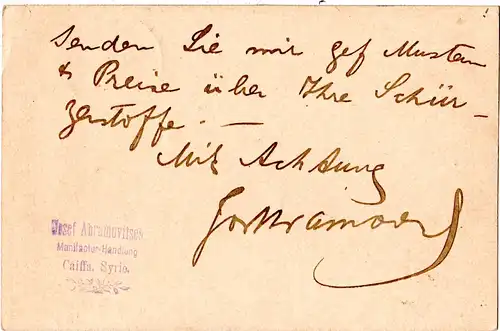 Senden Sie mir gef Muster
& Preise über Ihre Schür-
zenstoffe. —
Mit Achtung
Josef Abramovitsch
Manifactur-Handlung
Caiffa, Syrie.